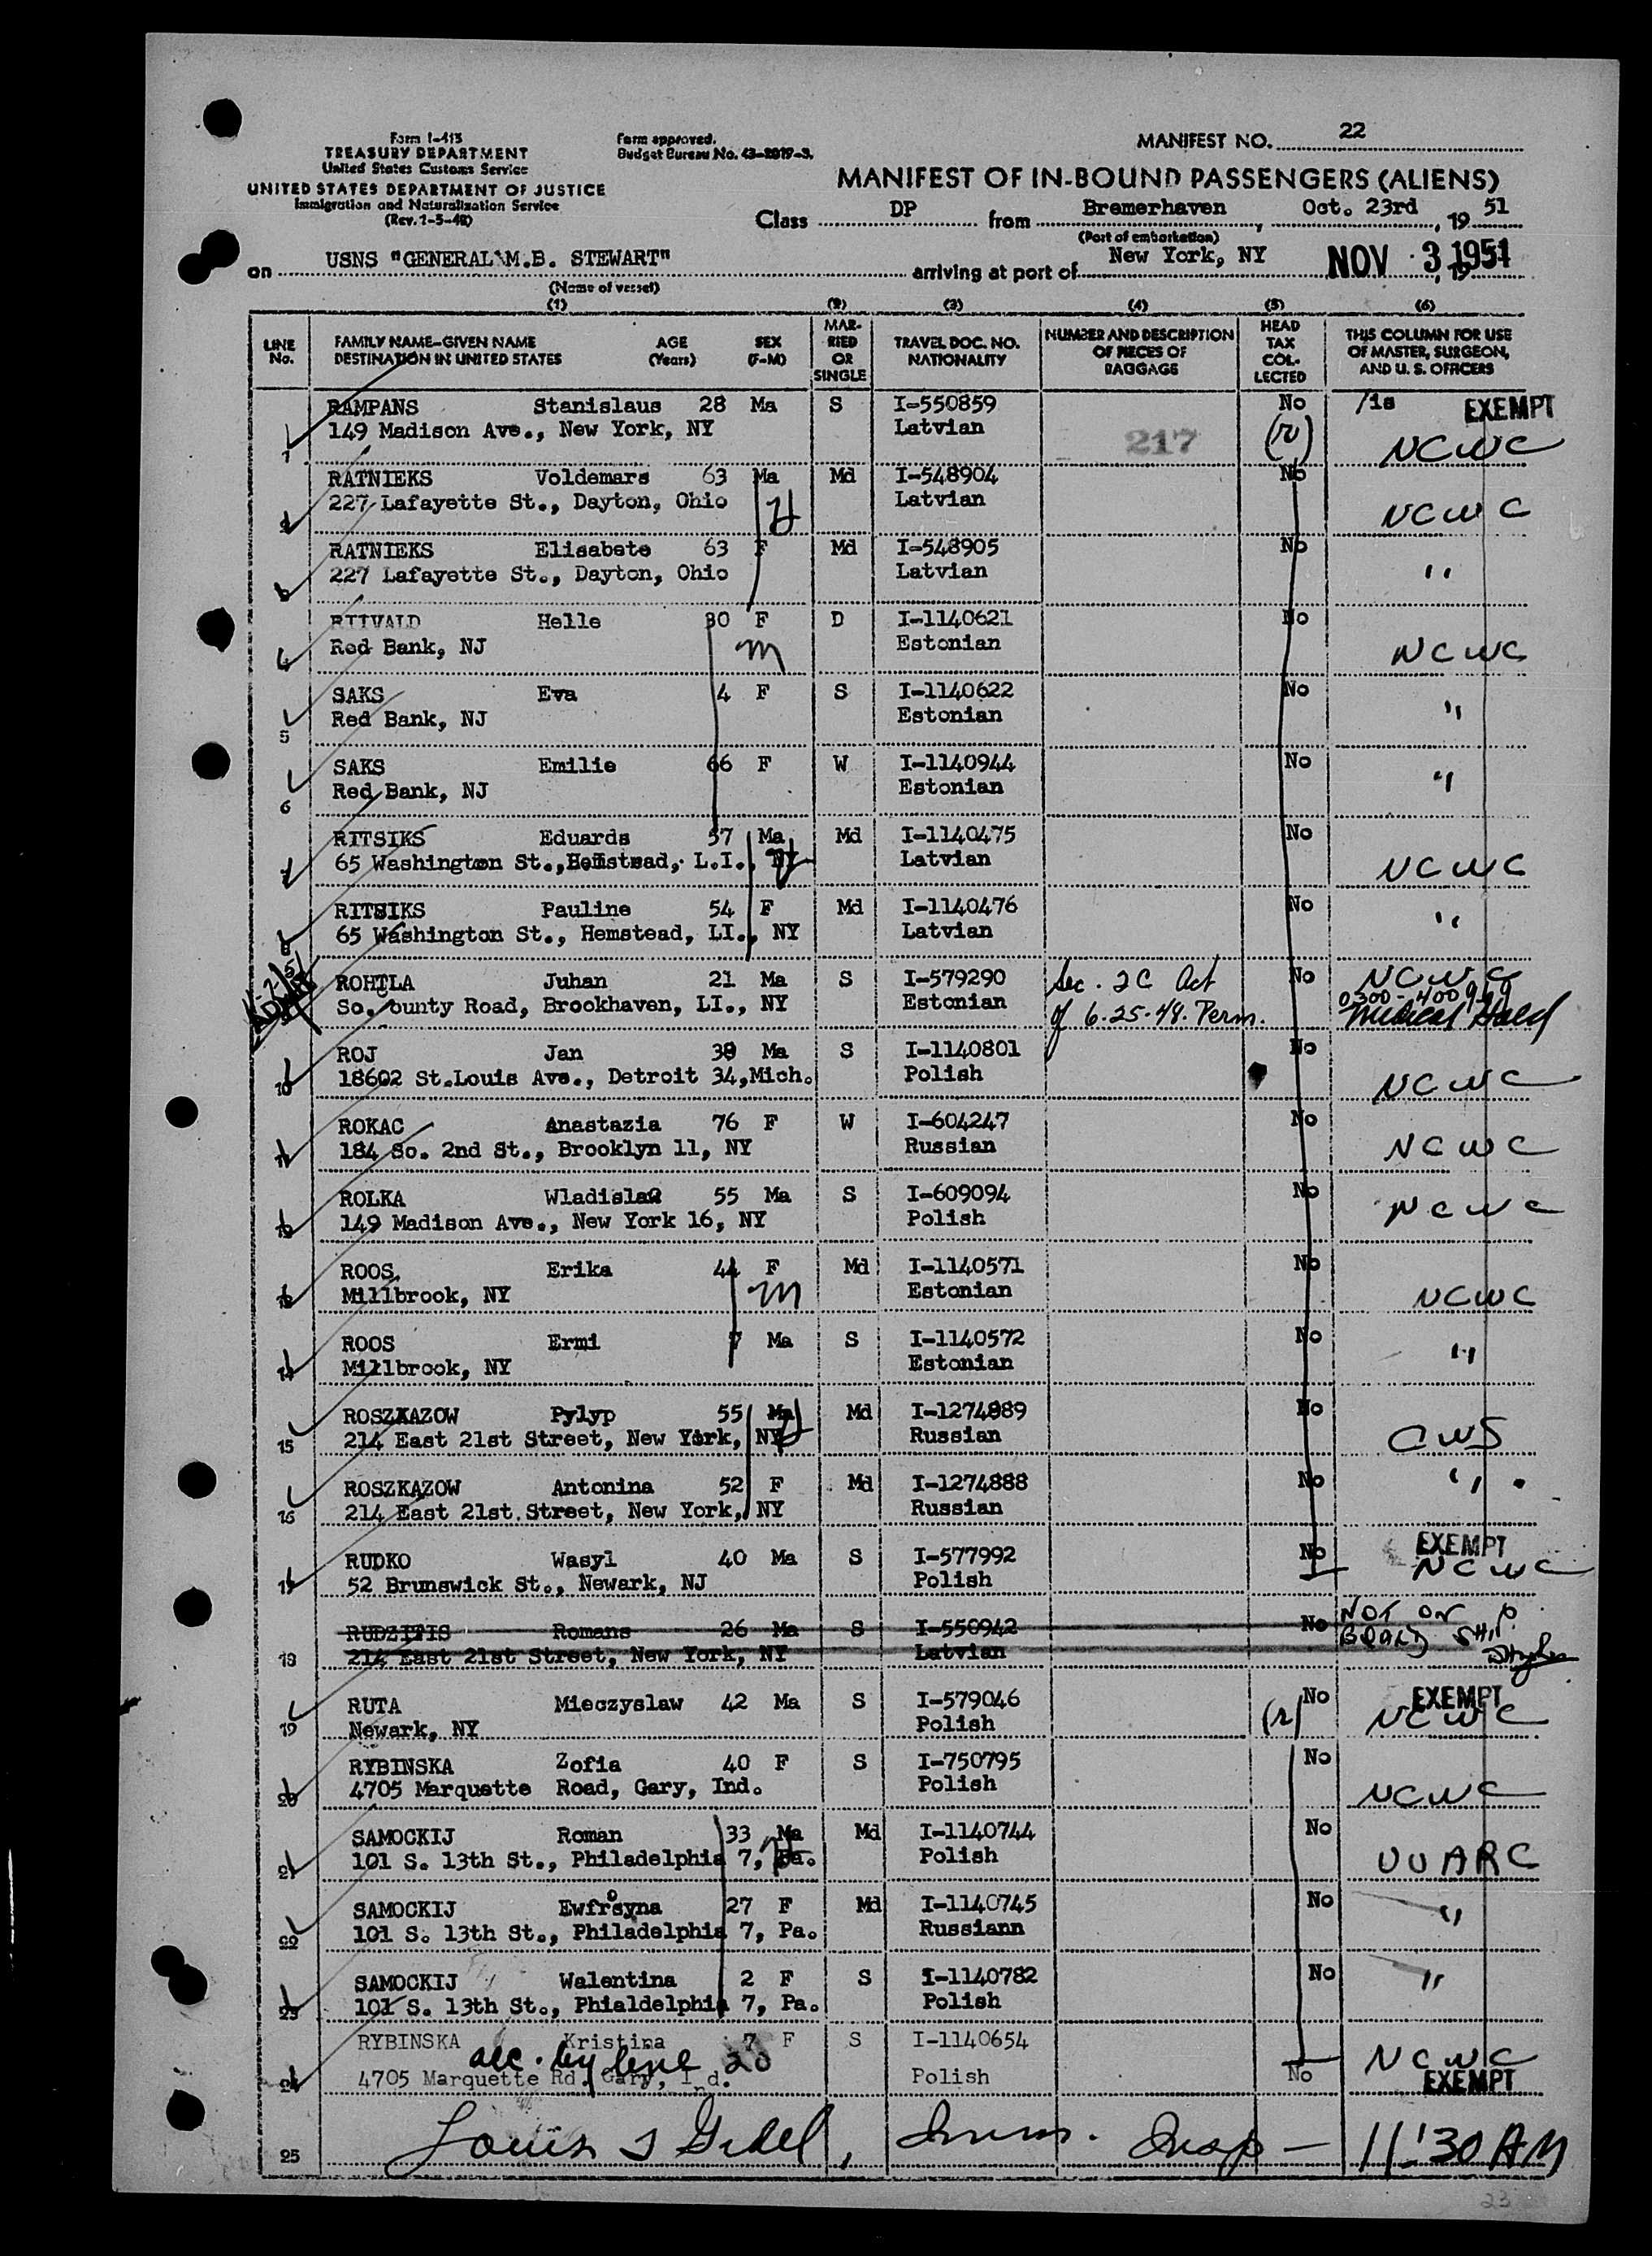 Form I-415
TREASURY DEPARTMENT
United States Customs Service
UNITED STATES DEPARTMENT OF JUSTICE
Immigration and Naturalization Service
(Rev. 1-5-48)
Form approved.
Budget Bureau No. 43-2019-3.
MANIFEST NO. 22
MANIFEST OF IN-BOUND PASSENGERS (ALIENS)
Class DP from Bremerhaven, Oct. 23rd, 19 51
(Port of embarkation)
on USNS "GENERAL M.B. STEWART" arriving at port of New York, NY NOV 3 1951, 19
(Name of vessel)
(1) (2) (3) (4) (5) (6)
LINE No. FAMILY NAME-GIVEN NAME DESTINATION IN UNITED STATES AGE (Years) SEX (F-M) MARRIED OR SINGLE TRAVEL DOC. NO. NATIONALITY NUMBER AND DESCRIPTION OF PIECES OF BAGGAGE HEAD TAX COLLECTED THIS COLUMN FOR USE OF MASTER, SURGEON, AND U. S. OFFICERS
RAMPANS Stanislaus 28 Ma S I-550859 No /is EXEMPT
1 149 Madison Ave., New York, NY Latvian 217 (r) NCWC
RATNIEKS Voldemars 63 Ma Md I-548904 No
2 227 Lafayette St., Dayton, Ohio Latvian NCWC
RATNIEKS Elisabete 63 F Md I-548905 No
3 227 Lafayette St., Dayton, Ohio Latvian "
RIIVALD Helle 30 F D I-1140621 No
4 Red Bank, NJ m Estonian NCWC
SAKS Eva 4 F S I-1140622 No
5 Red Bank, NJ Estonian "
SAKS Emilie 66 F W I-1140944 No
6 Red Bank, NJ Estonian "
RITSIKS Eduards 57 Ma Md I-1140475 No
7 65 Washington St., Hemstead, L.I., NY Latvian NCWC
RITSIKS Pauline 54 F Md I-1140476 No
8 65 Washington St., Hemstead, LI., NY Latvian "
ROHTLA Juhan 21 Ma S I-579290 Sec. 2C Act No NCWC
So. County Road, Brookhaven, LI., NY Estonian of 6-25-48. Perm. 0300-400 Medical Held
ROJ Jan 38 Ma S I-1140801 No
10 18602 St.Louis Ave., Detroit 34,Mich. Polish NCWC
ROKAC Anastazia 76 F W I-604247 No
11 184 So. 2nd St., Brooklyn 11, NY Russian NCWC
ROLKA Wladislaw 55 Ma S I-609094 No
12 149 Madison Ave., New York 16, NY Polish NCWC
ROOS Erika 44 F Md I-1140571 No
13 Millbrook, NY m Estonian NCWC
ROOS Ermi 7 Ma S I-1140572 No
14 Millbrook, NY Estonian "
ROSZKAZOW Pylyp 55 Ma Md I-1274889 No
15 214 East 21st Street, New York, NY Russian CWS
ROSZKAZOW Antonina 52 F Md I-1274888 No "
16 214 East 21st Street, New York, NY Russian
RUDKO Wasyl 40 Ma S I-577992 No EXEMPT
17 52 Brunswick St., Newark, NJ Polish NCWC
RUDZITIS Romans 26 Ma S I-550942 No NOT ON
18 214 East 21st Street, New York, NY Latvian BOARD SHIP
RUTA Mieczyslaw 42 Ma S I-579046 No EXEMPT
19 Newark, NY Polish (r) NCWC
RYBINSKA Zofia 40 F S I-750795 No
20 4705 Marquette Road, Gary, Ind. Polish NCWC
SAMOCKIJ Roman 33 Ma Md I-1140744 No
21 101 S. 13th St., Philadelphia 7, Pa. Polish UUARC
SAMOCKIJ Ewfrosyna 27 F Md I-1140745 No
22 101 S. 13th St., Philadelphia 7, Pa. Russiann "
SAMOCKIJ Walentina 2 F S I-1140782 No
23 101 S. 13th St., Phialdelphia 7, Pa. Polish "
RYBINSKA Kristina 7 F S I-1140654
acc. by line 20 NCWC
24 4705 Marquette Rd. Gary, Ind. Polish No EXEMPT
25 Louis J Gedel, Imm. Insp - 11:30 AM
23